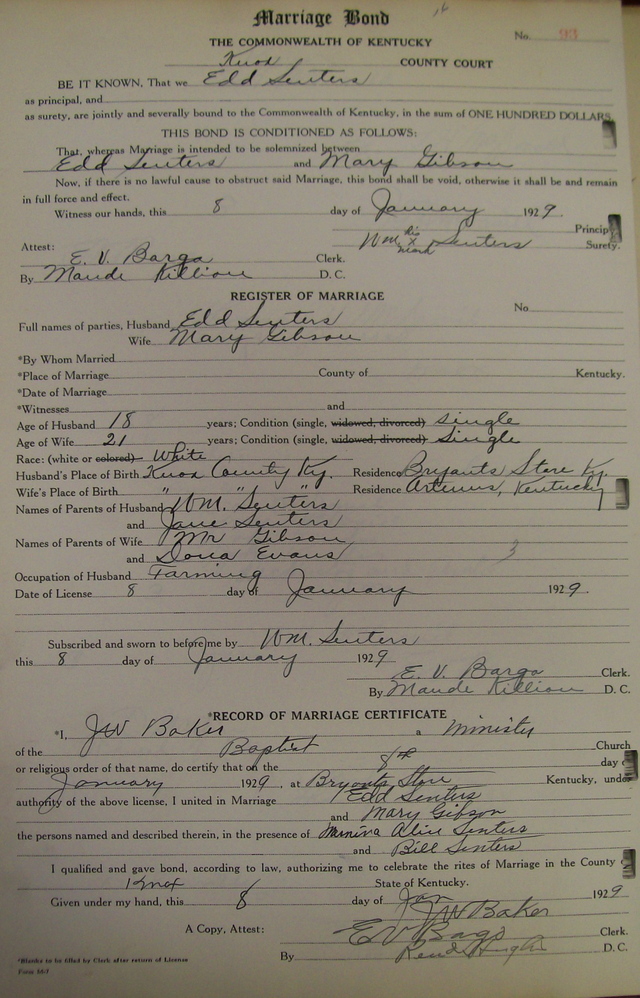 Marriage Bond
No. 93
THE COMMONWEALTH OF KENTUCKY
Knox COUNTY COURT
BE IT KNOWN, That we Edd Senters
as principal, and
as surety, are jointly and severally bound to the Commonwealth of Kentucky, in the sum of ONE HUNDRED DOLLARS
THIS BOND IS CONDITIONED AS FOLLOWS:
That, whereas Marriage is intended to be solemnized between
Edd Senters and Mary Gibson
Now, if there is no lawful cause to obstruct said Marriage, this bond shall be void, otherwise it shall be and remain
in full force and effect.
Witness our hands, this 8 day of January 1929.
Princip
Wm. his X mark Senters Surety.
Attest:
E. V. Bargo Clerk.
By Maude Killion D. C.
REGISTER OF MARRIAGE
No.
Full names of parties, Husband Edd Senters
Wife Mary Gibson
*By Whom Married
*Place of Marriage County of Kentucky.
*Date of Marriage
*Witnesses and
Age of Husband 18 years; Condition (single, widowed, divorced) Single
Age of Wife 21 years; Condition (single, widowed, divorced) Single
Race: (white or colored) White
Husband's Place of Birth Knox County Ky. Residence Bryants Store Ky.
Wife's Place of Birth " " " Residence Artemus, Kentucky
Names of Parents of Husband Wm. Senters
and Jane Senters
Names of Parents of Wife Mr Gibson
and Dona Evans
3
Occupation of Husband Farming
Date of License 8 day of January 1929.
Subscribed and sworn to before me by Wm. Senters
this 8 day of January 1929
E. V. Bargo Clerk.
By Maude Killion D. C.
*RECORD OF MARRIAGE CERTIFICATE
*I, JW Baker a Minister
of the Baptist Church
or religious order of that name, do certify that on the 8th day o
January 1929, at Bryants Store Kentucky, under
authority of the above license, I united in Marriage Edd Senters
and Mary Gibson
the persons named and described therein, in the presence of Alice Senters
and Bill Senters
I qualified and gave bond, according to law, authorizing me to celebrate the rites of Marriage in the County
Knox State of Kentucky.
Given under my hand, this 8 day of Jan 1929
JW Baker
A Copy, Attest: E V Bargo Clerk.
By D. C.
*Blanks to be filled by Clerk after return of License